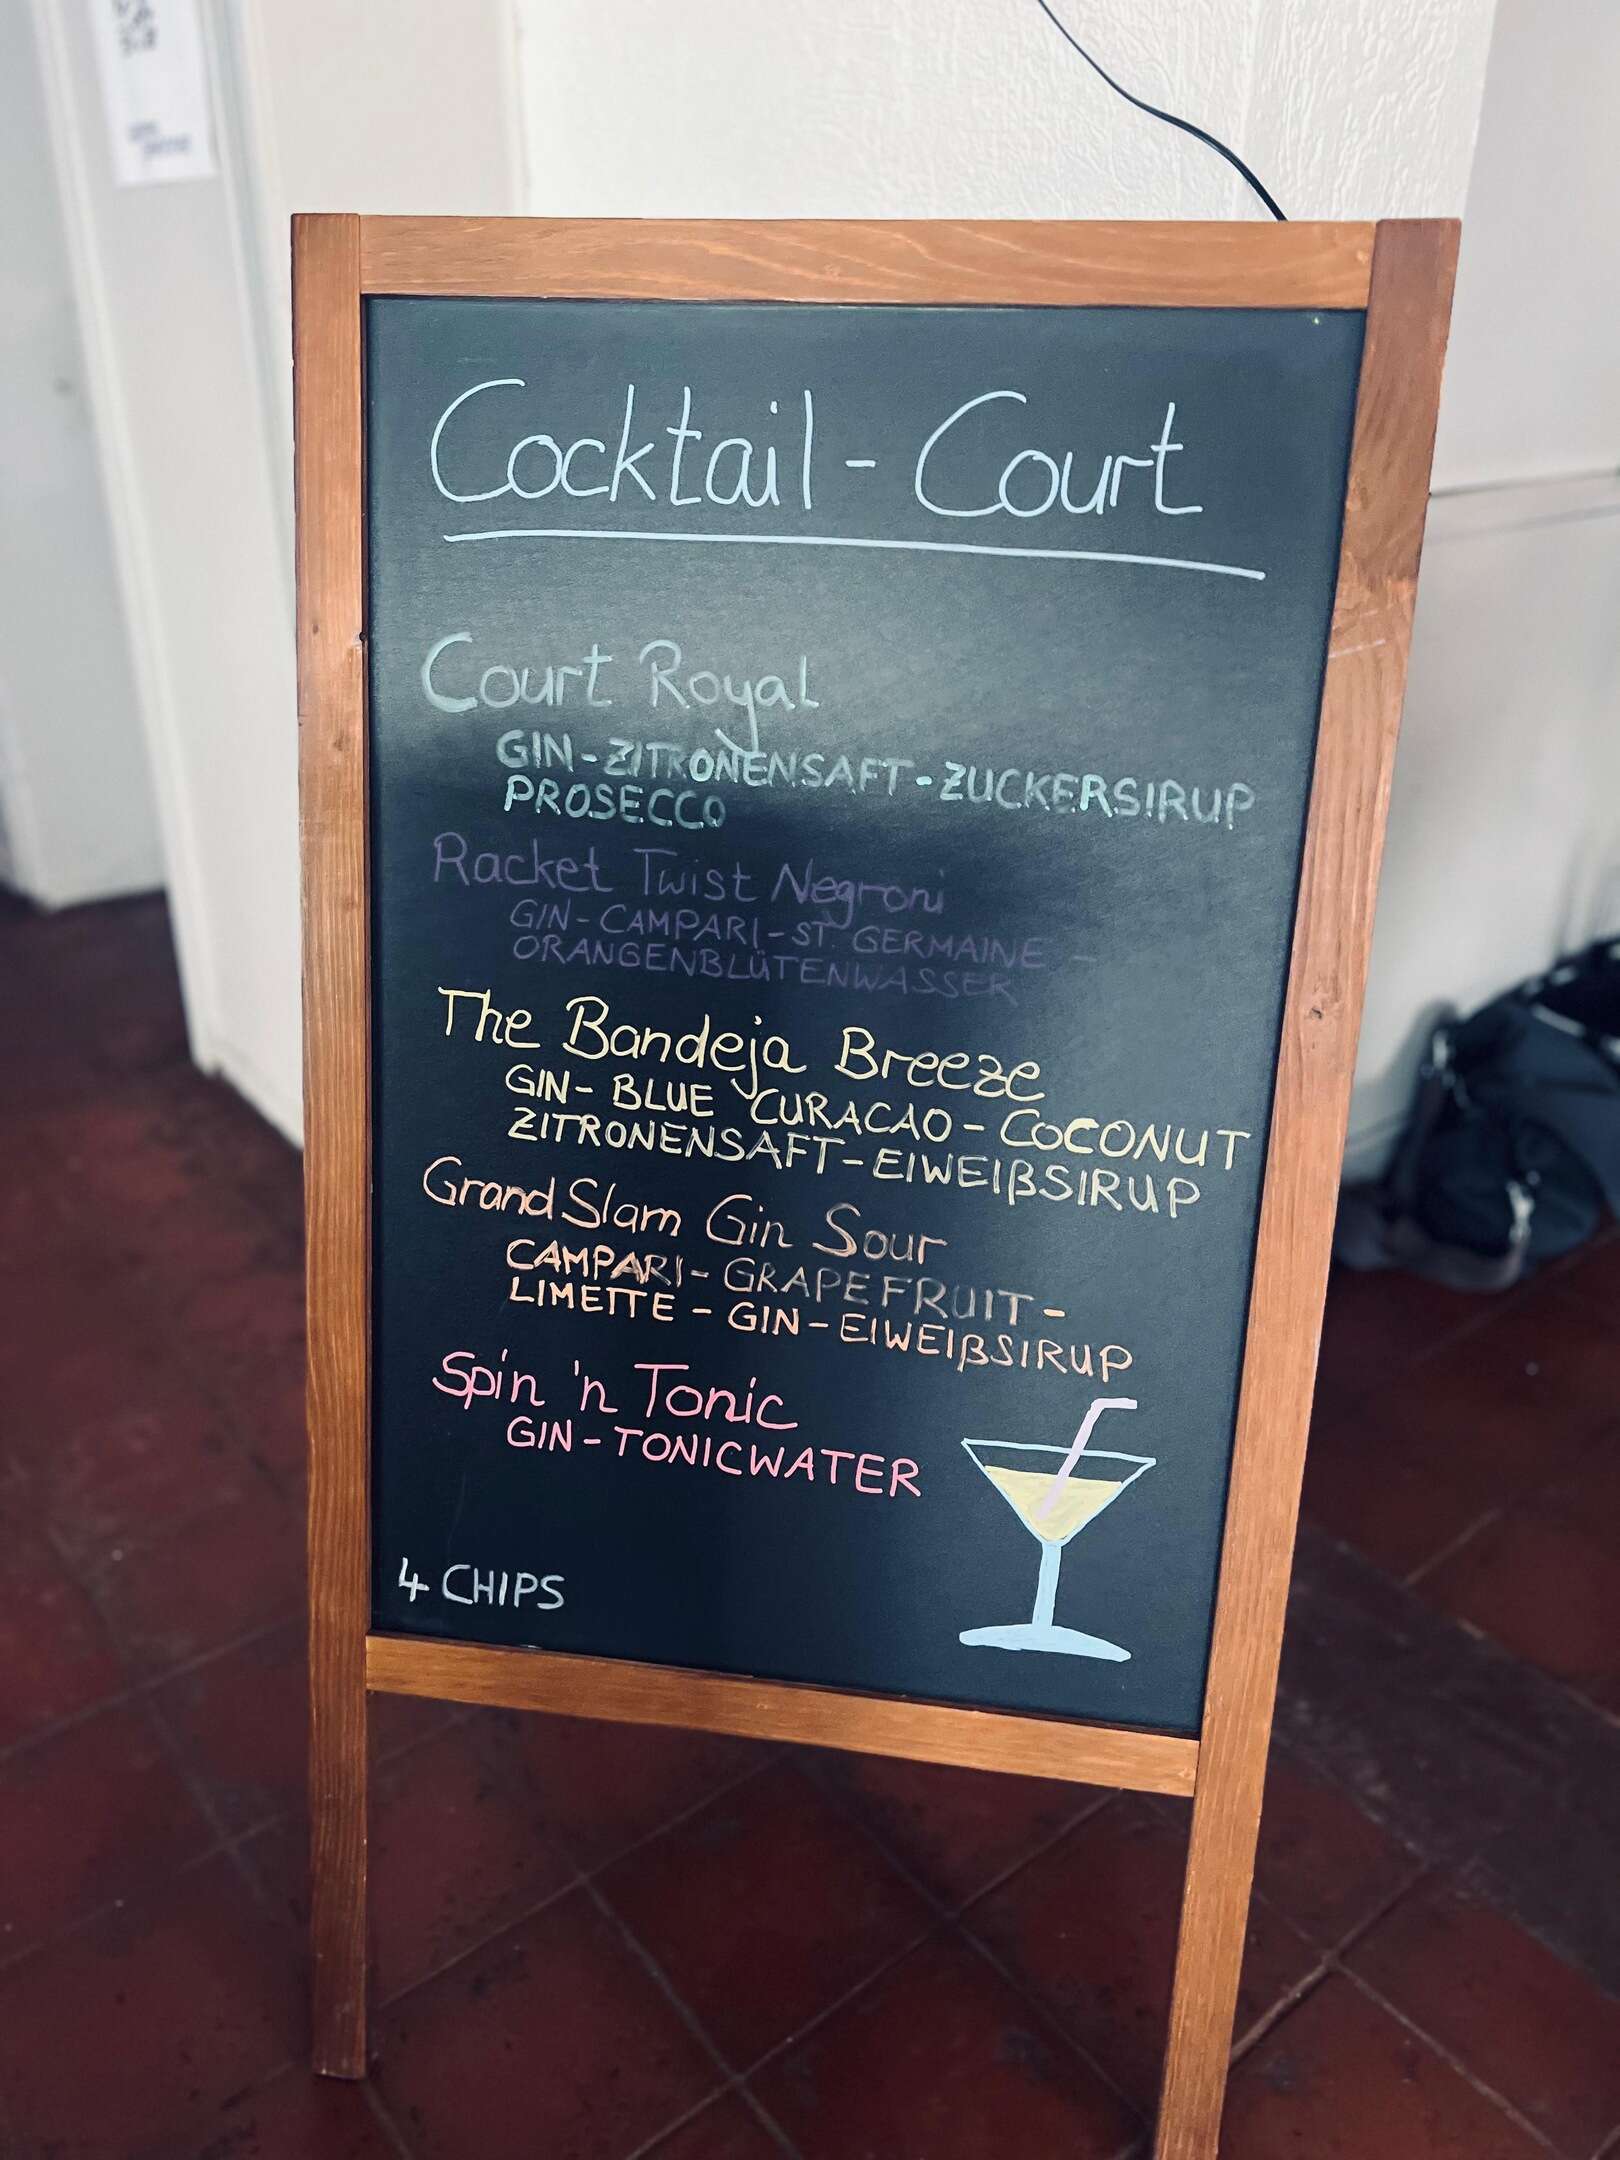 Cocktail - Court
Court Royal
GIN - ZITRONENSAFT - ZUCKERSIRUP
PROSECCO
Racket Twist Negroni
GIN - CAMPARI - ST. GERMAINE -
ORANGENBLÜTENWASSER
The Bandeja Breeze
GIN - BLUE CURACAO - COCONUT
ZITRONENSAFT - EIWEIßSIRUP
Grand Slam Gin Sour
CAMPARI - GRAPEFRUIT -
LIMETTE - GIN - EIWEIßSIRUP
Spin 'n Tonic
GIN - TONICWATER
4 CHIPS